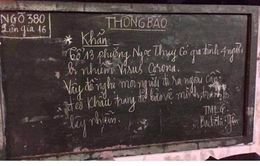 NGÕ 380
THÔNG BÁO
* Khẩn
Tổ 13 phường Ngọc Thuỵ Có gia đình 4 người
bị nhiễm Virus Corona.
Vậy đề nghị mọi người đi ra ngoài
đeo Khẩu trang để bảo vệ mình tránh
lây nhiễm.